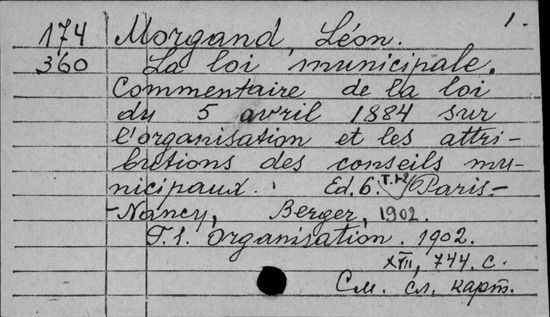 1.
174 Morgand, Léon.
360 La loi municipale.
Commentaire de la loi
du 5 avril 1884 sur
l'organisation et les attri-
butions des conseils mu-
nicipaux. Ed. 6. Paris-
-Nancy, Berger, 1902.
T.1. Organisation. 1902.
XVII, 744 с.
См. сл. карт.